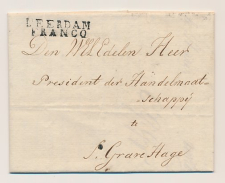 LEERDAM
FRANCO
Den Wel Edelen Heer
President der Handelmaat-
schappij
te
s' Grave Hage